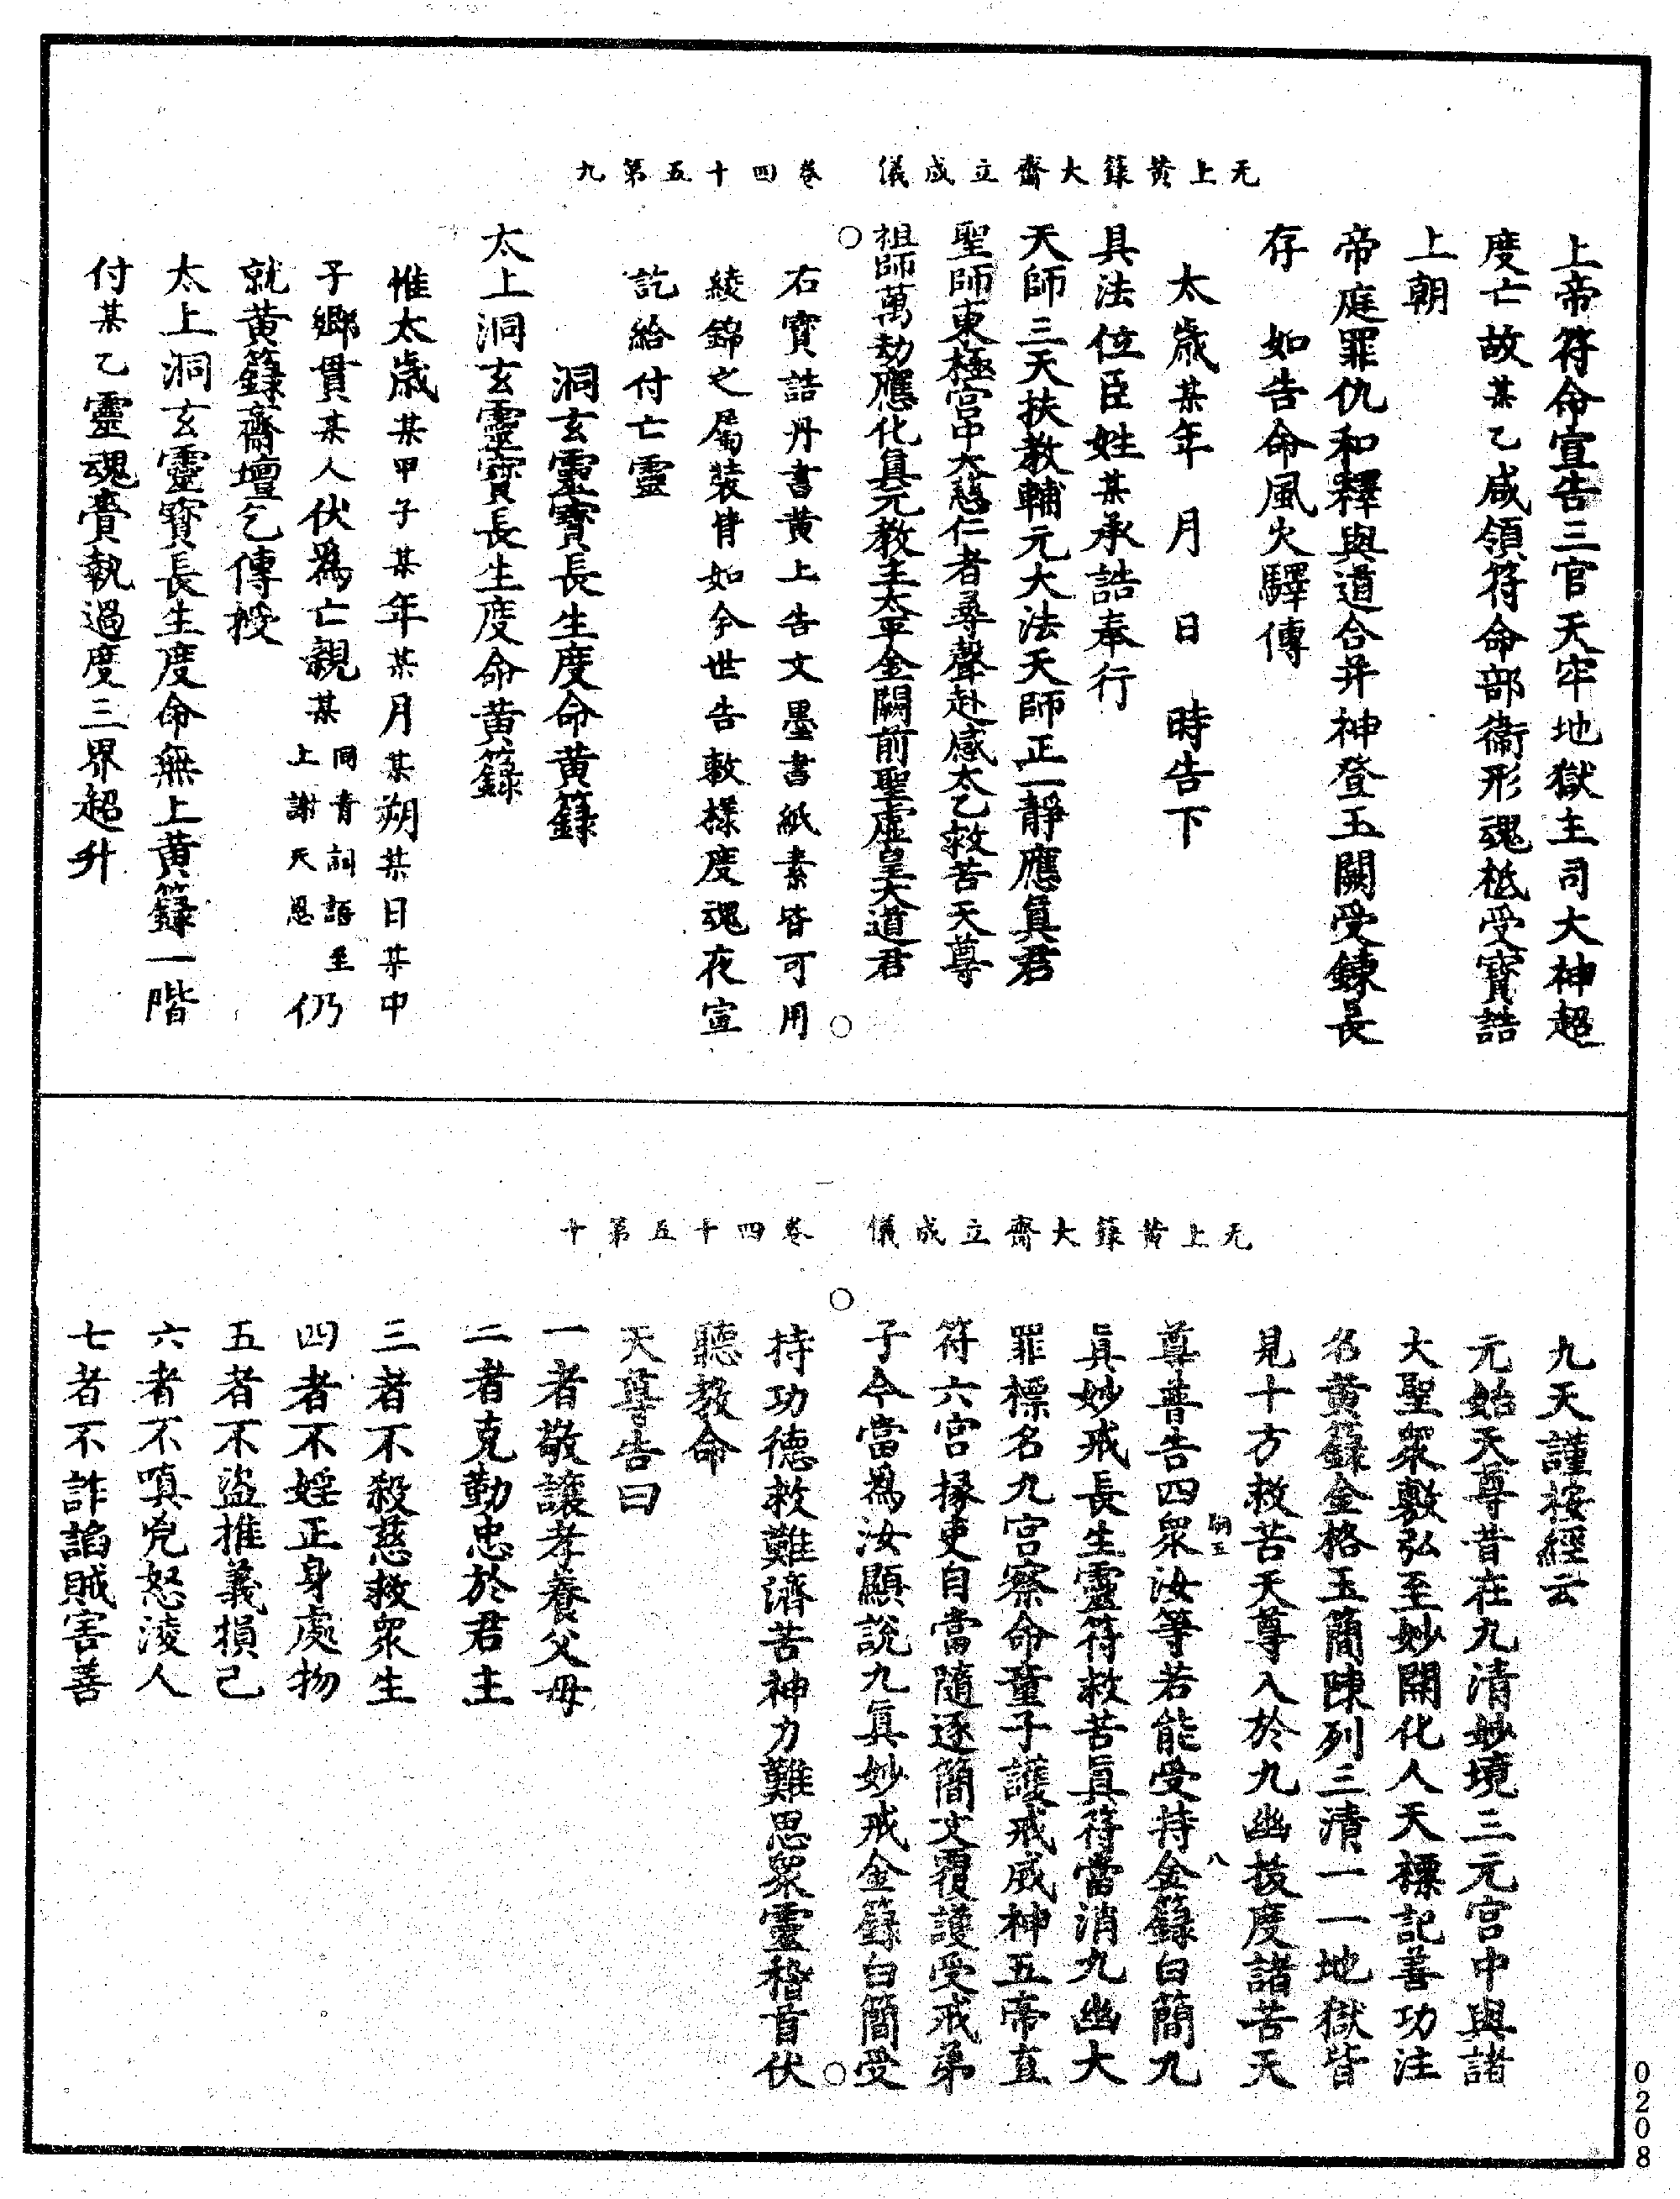 无上黄籙大齋立成儀　卷四十五第九
上帝符命宣告三官天牢地獄主司大神超
度亡故某乙咸領符命部衞形魂祗受寳誥
上朝
帝庭罪仇和釋與道合并神登玉闕受鍊長
存　如告命風火驛傳
太歲某年　月　日　時告下
具法位臣姓某承誥奉行
天師三天扶教輔元大法天師正一靜應眞君
聖師東極宫中大慈仁者尋聲赴感太乙救苦天尊
祖師萬劫應化眞元教主太平金闕前聖虛皇大道君
右寳誥丹書黄上告文墨書紙素皆可用
綾錦之屬裝背如今世告敕樣度魂夜宣
訖給付亡靈
洞玄靈寳長生度命黄籙
太上洞玄靈寳長生度命黄籙
惟太歲某甲子某年某月某朔某日某中
子鄉貫某人伏爲亡親某同青詞語至上謝天恩仍
就黄籙齋壇乞傳授
太上洞玄靈寳長生度命無上黄籙一階
付某乙靈魂賷執過度三界超升
无上黄籙大齋立成儀　卷四十五第十
九天謹按經云
元始天尊昔在九清妙境三元宫中與諸
大聖衆敷弘至妙開化人天標記善功注
名黄籙金格玉簡陳列三清一一地獄皆
見十方救苦天尊入於九幽拔度諸苦天
嗣五　八
尊普告四衆汝等若能受持金籙白簡九
眞妙戒長生靈符救苦眞符當消九幽大
罪標名九宫察命童子護戒威神五帝直
符六宫掾吏自當隨逐簡文覆護受戒弟
子今當爲汝顯說九眞妙戒金籙白簡受
持功德救難濟苦神力難思衆靈稽首伏
聽教命
天尊告曰
一者敬讓孝養父母
二者克勤忠於君主
三者不殺慈救衆生
四者不婬正身處物
五者不盜推義損己
六者不嗔兇怒凌人
七者不詐諂賊害善
0208